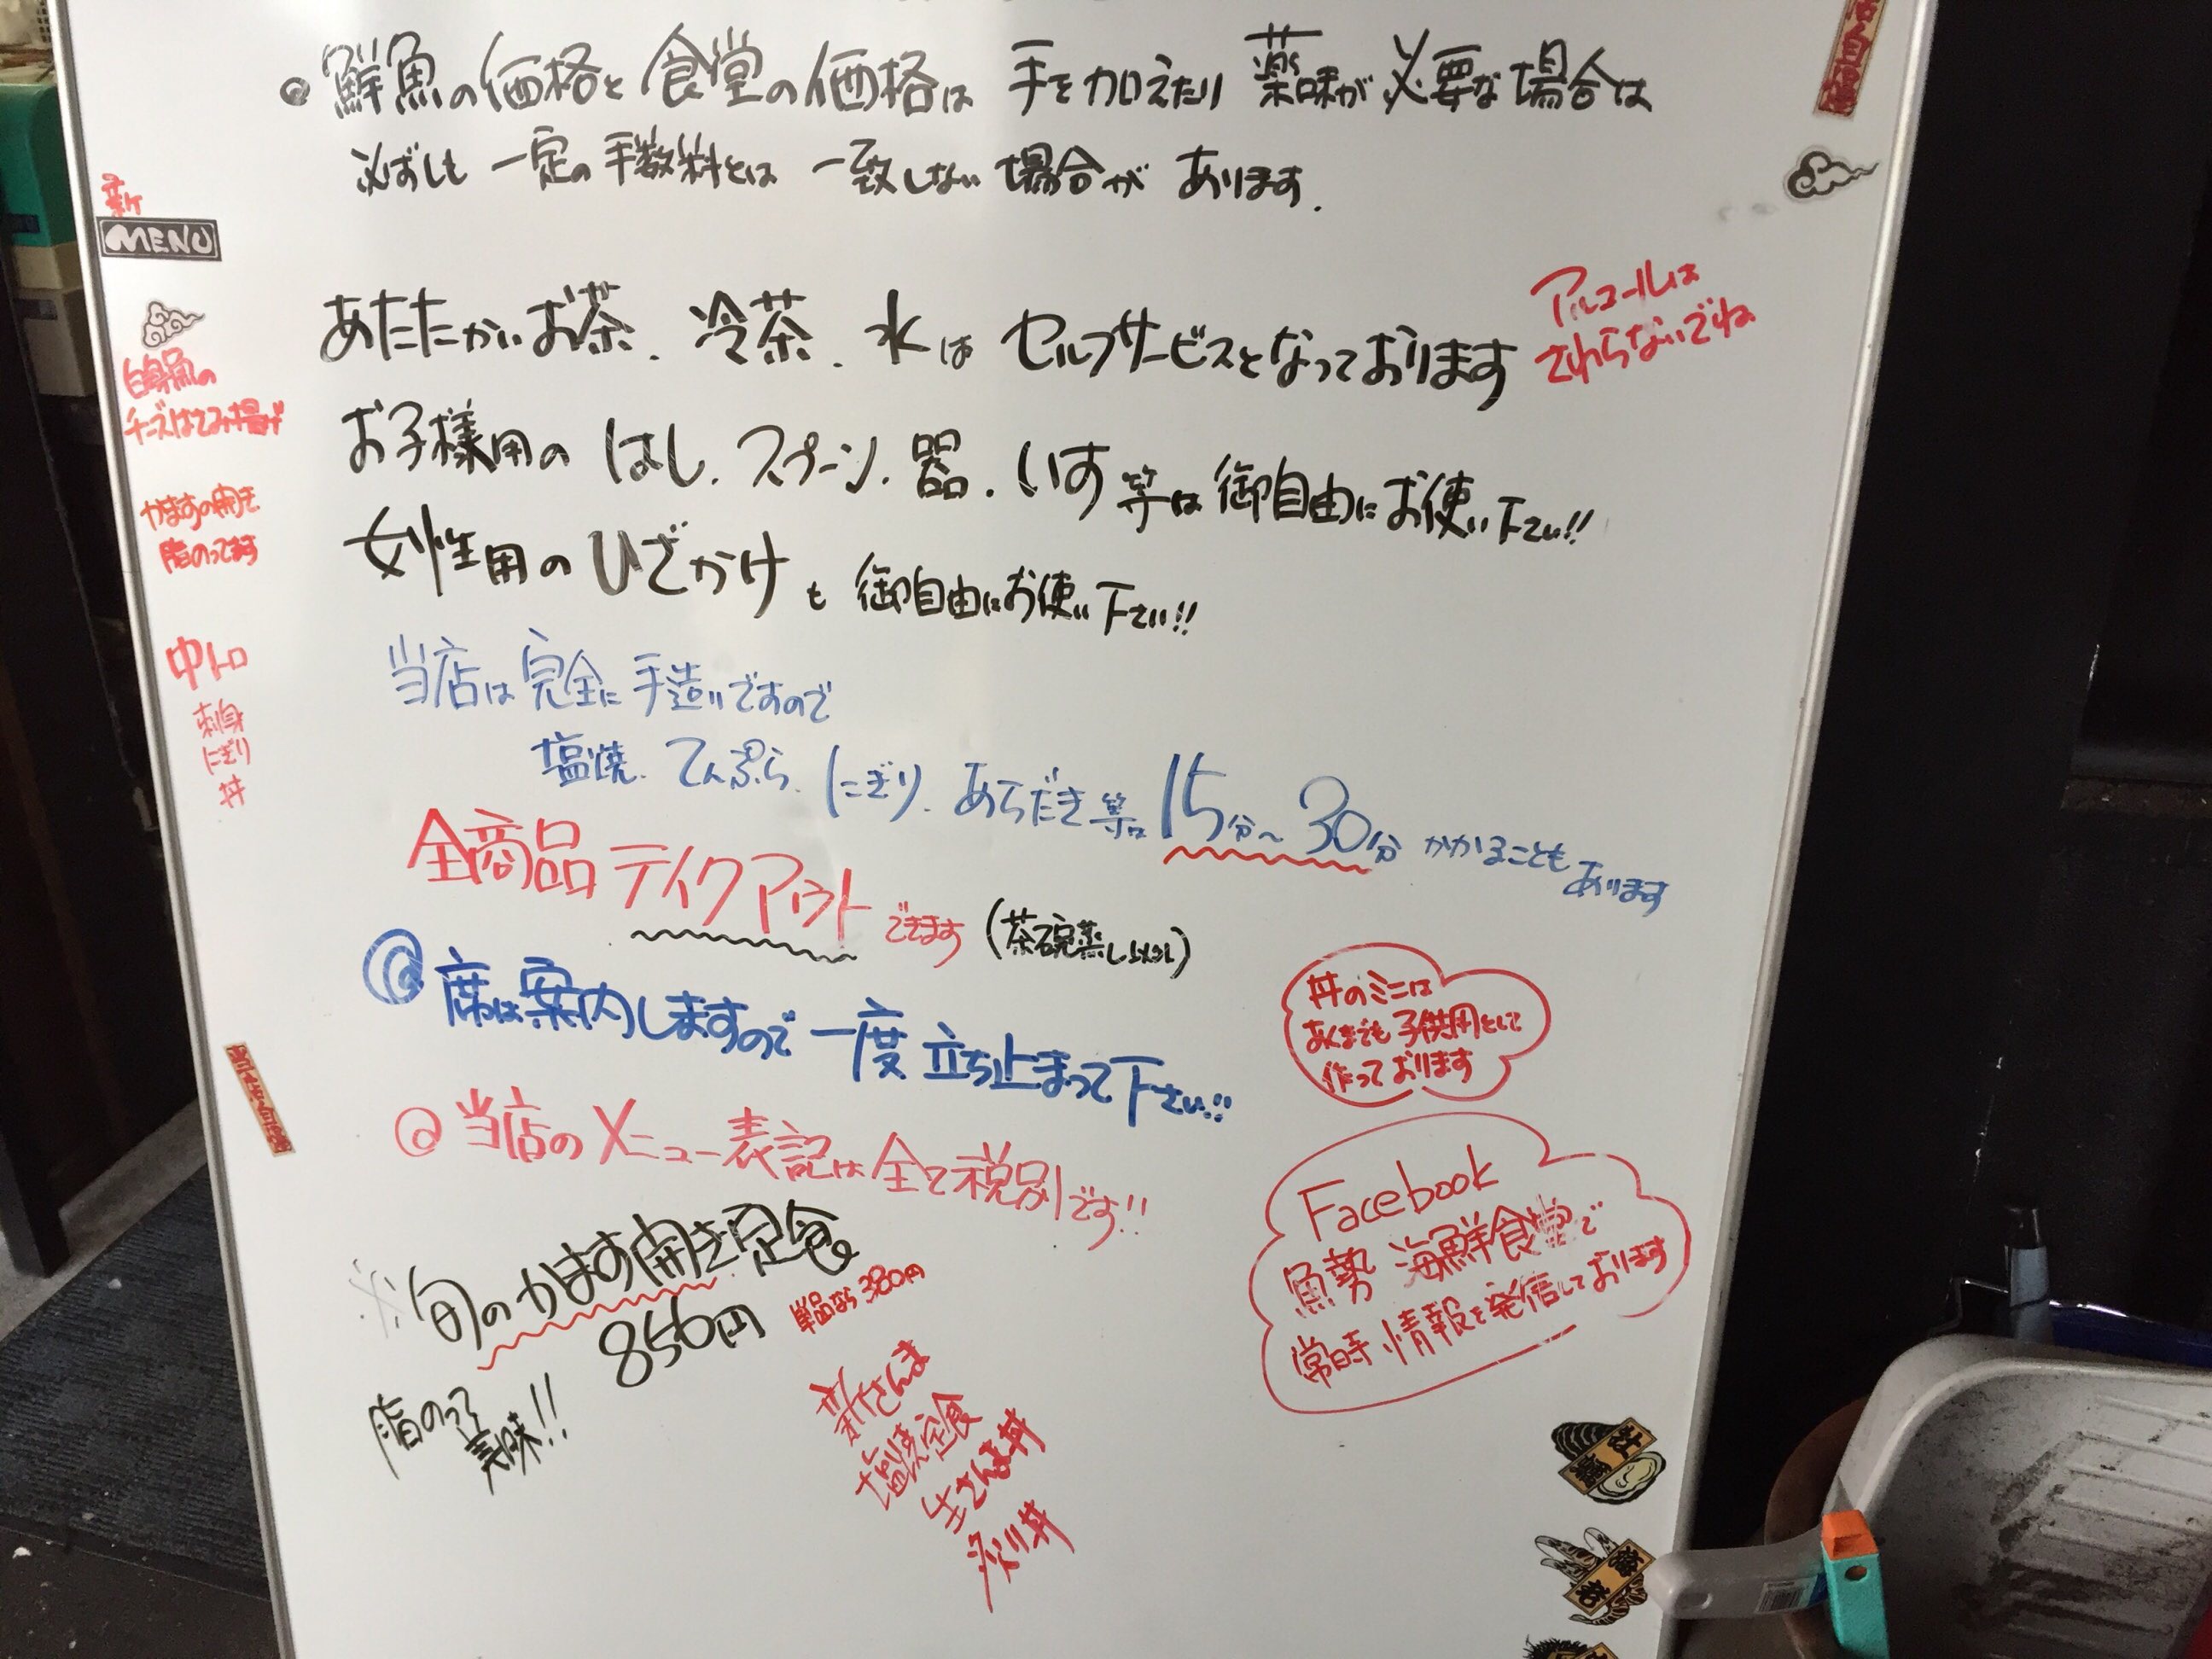 鮮魚の価格と食堂の価格は 手を加えたり 薬味が必要な場合は
必ずしも 一定の手数料とは 一致しない場合が あります.
新
MENU
白身魚の
チーズはさみ揚げ
かますの開き
脂のってます
中トロ
刺身
にぎり
丼
あたたかいお茶. 冷茶. 水は セルフサービスとなっております
アルコールは
さわらないでね
お子様用の はし. スプーン. 器. いす 等は 御自由にお使い下さい!!
女性用の ひざかけも 御自由にお使い下さい!!
当店は 完全に 手造りですので
塩焼. てんぷら. にぎり. あらだき 等は 15分〜30分 かかることも
あります
全商品 テイクアウト できます (茶碗蒸し以外)
席は案内しますので 一度 立ち止まって下さい!!
丼のミニは
あくまでも 子供用として
作っております
当店の メニュー表記は 全て税別です!!
Facebook
魚勢 海鮮食堂で
常時 情報を発信しております
※旬のかます開き定食
850円
単品なら 380円
脂のって
美味!!
新さんま
塩焼定食
生さんま丼
炙り丼
牡蠣